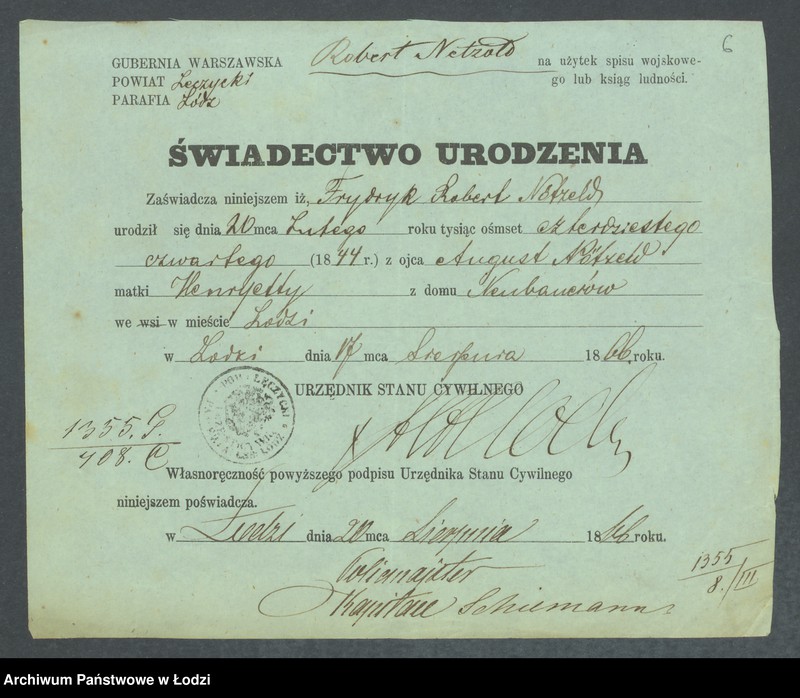 6
Robert Netzold
GUBERNIA WARSZAWSKA
POWIAT Łęczycki
PARAFIA Łódz
na użytek spisu wojskowe-
go lub ksiąg ludności.
ŚWIADECTWO URODZENIA
Zaświadcza niniejszem iż, Frydryk Robert Nötzeld
urodził się dnia 20 mca Lutego roku tysiąc ośmset czterdziestego
czwartego (1844 r.) z ojca August Nötzeld
matki Henryetty z domu Neubauerów
we wsi w mieście Łodzi
w Łodzi dnia 17 mca Sierpnia 1866 roku.
URZĘDNIK STANU CYWILNEGO
POW: ŁĘCZYCKI
1355. G.
408. C
Własnoręczność powyższego podpisu Urzędnika Stanu Cywilnego
niniejszem poświadcza.
w Łodzi dnia 20 mca Sierpnia 1866 roku.
Policmajster
Kapitan Schiemann
1355
8./III
Archiwum Państwowe w Łodzi